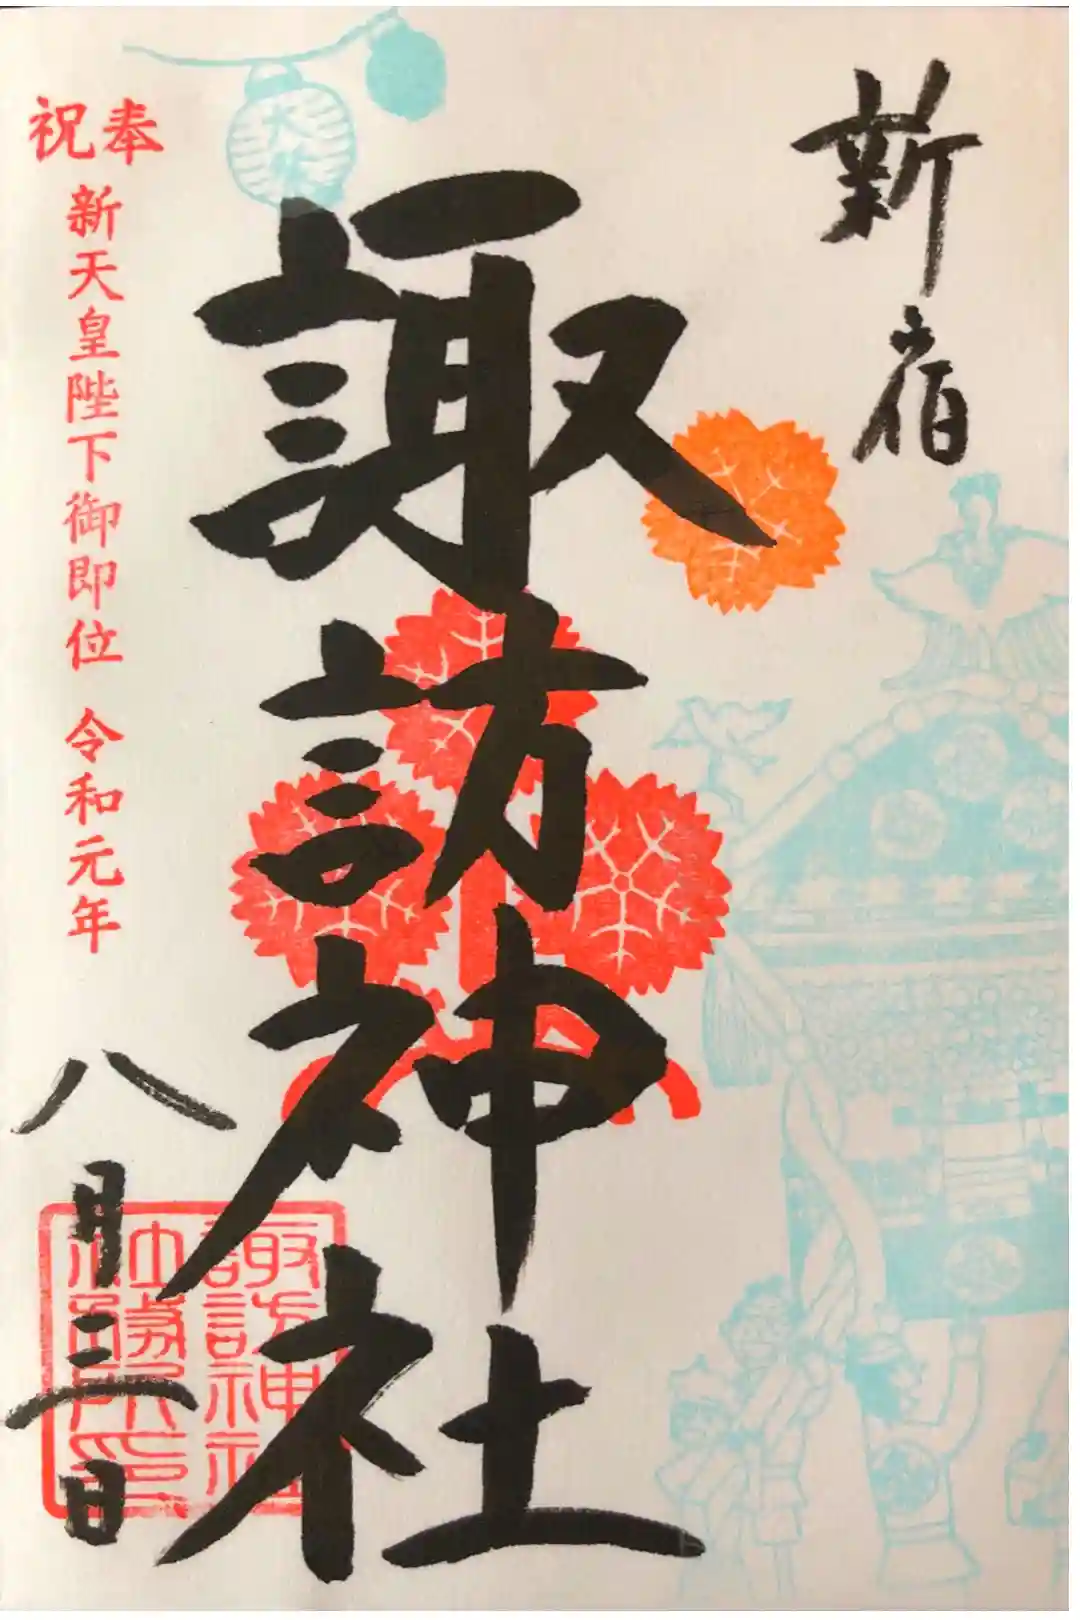 新宿
諏訪神社
奉祝
新天皇陛下御即位 令和元年
八月三日
諏訪神社
社務所印